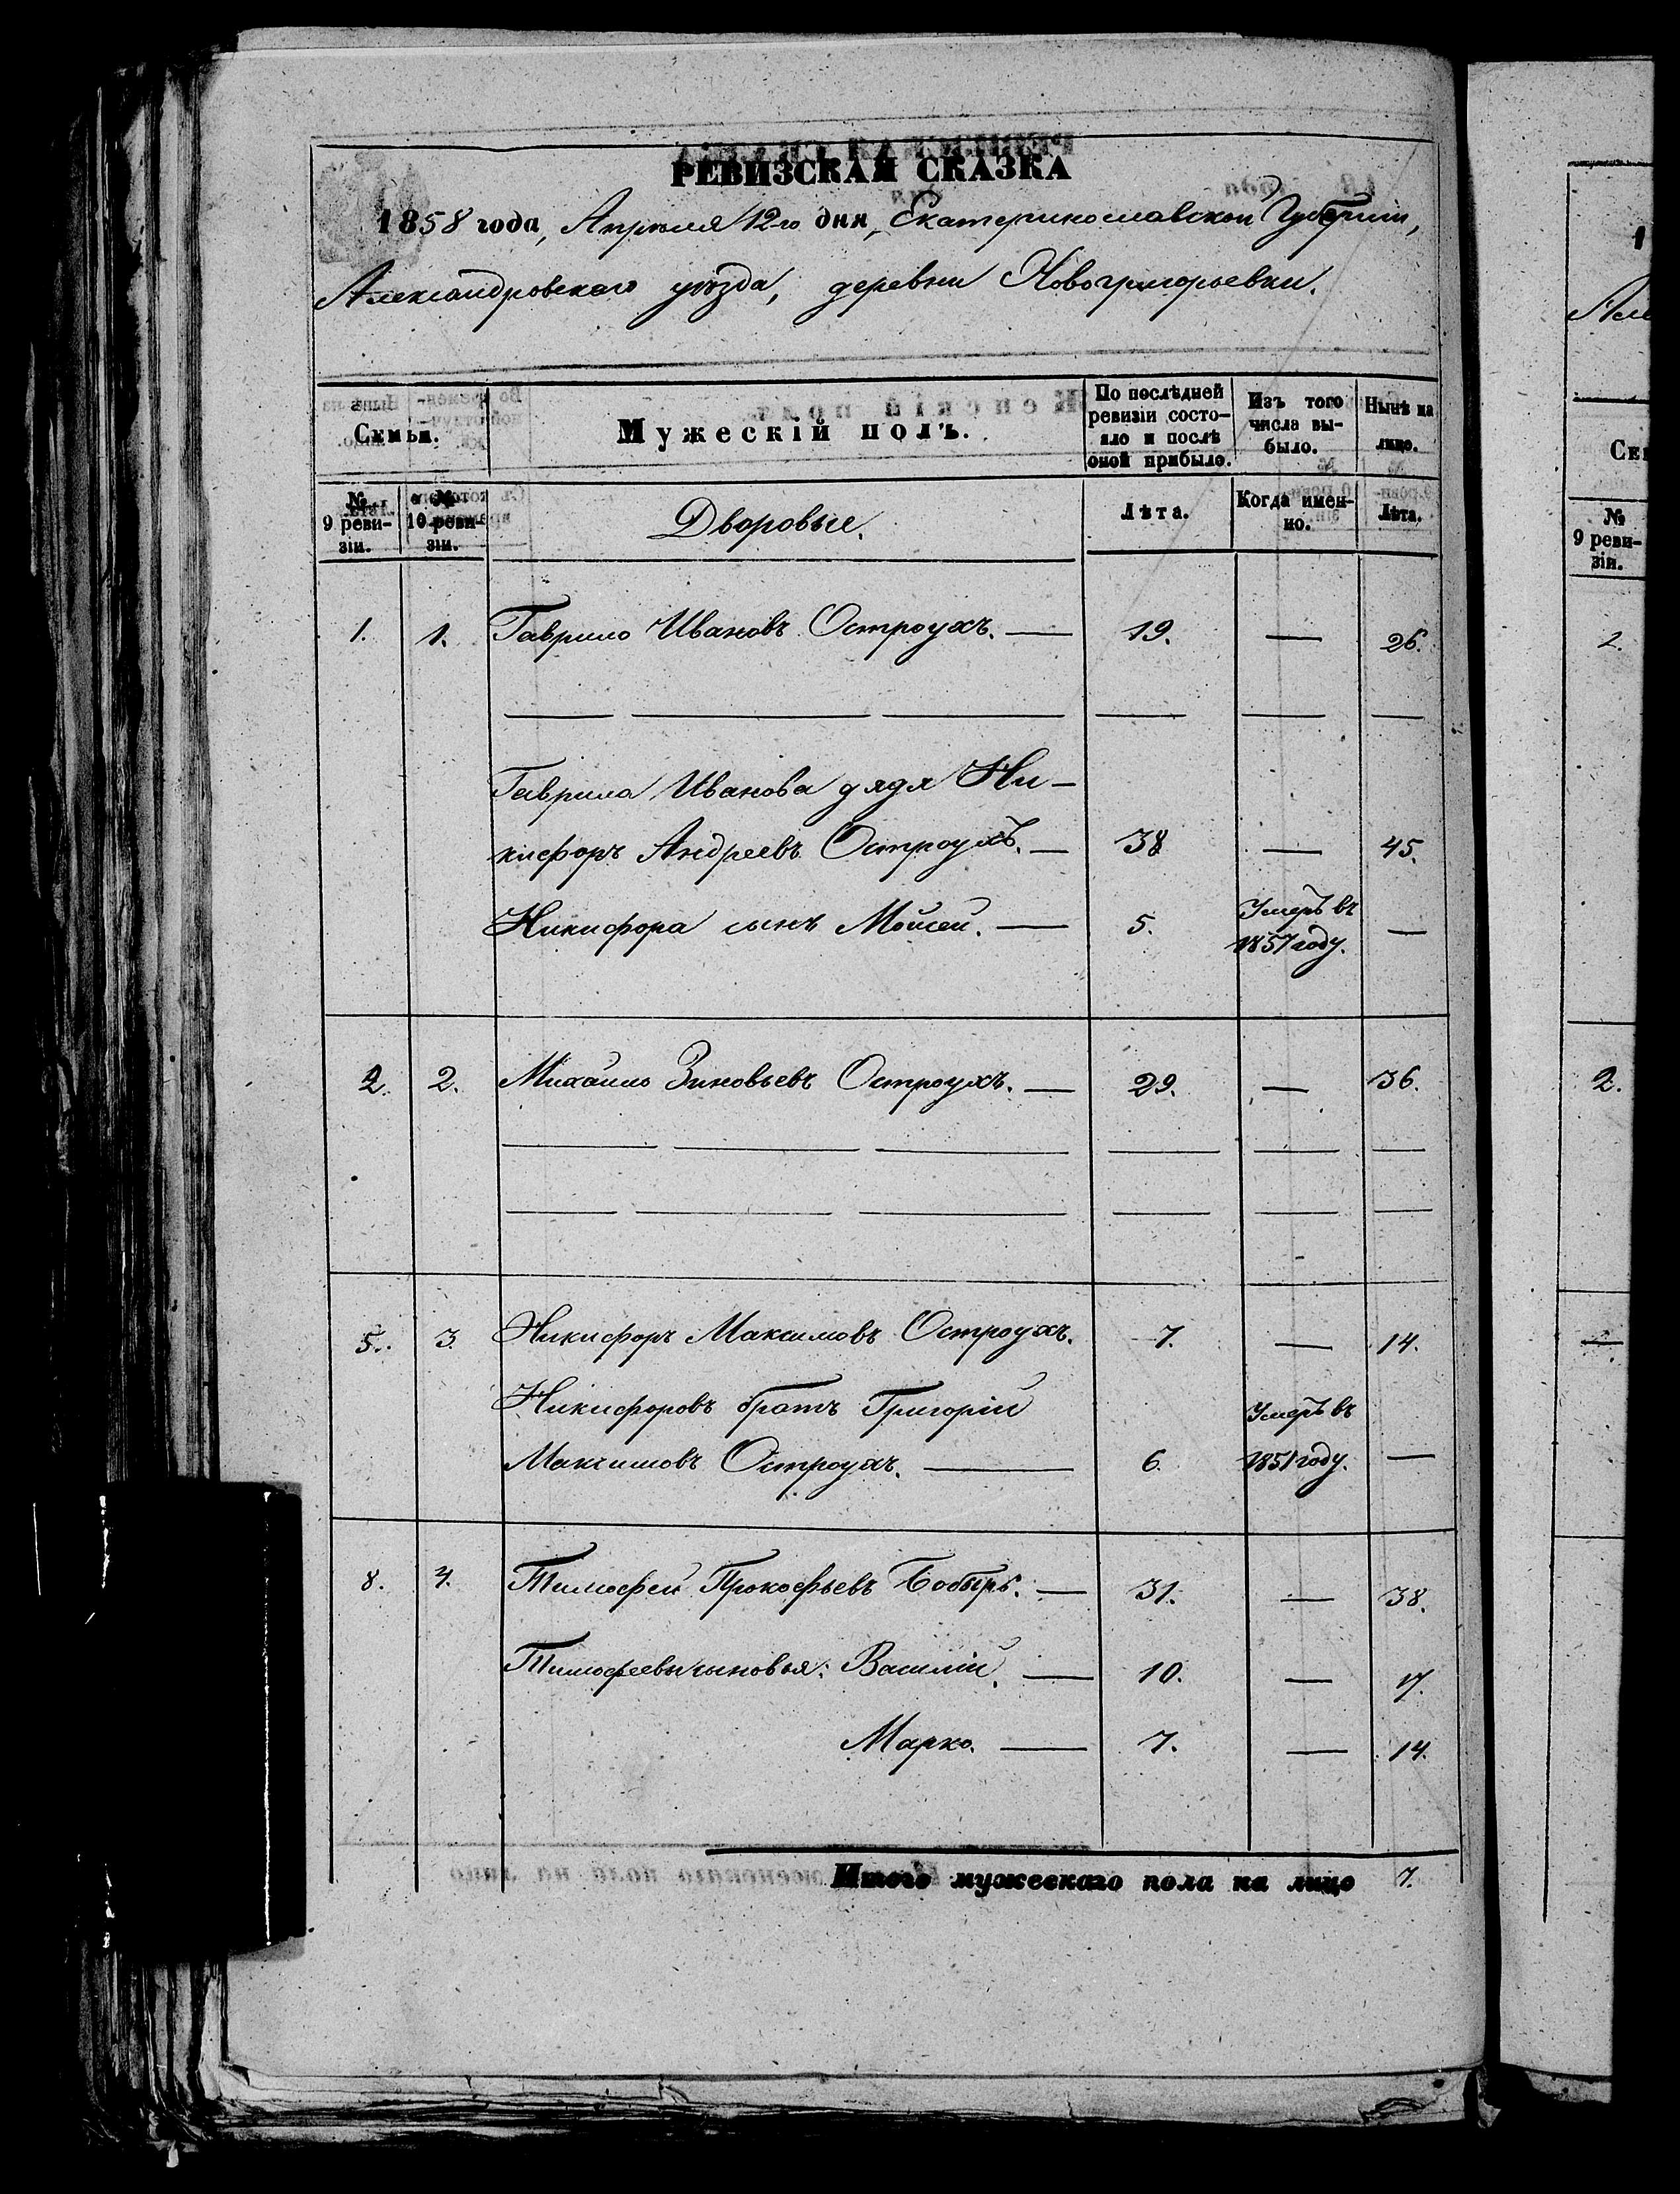 РЕВИЗСКАЯ СКАЗКА
1858 года, Апрѣля 12-го дня, Екатеринославской Губерніи,
Александровскаго уѣзда, деревни Новогригорьевки.
Семьи. Мужескій полъ. По послѣдней ревизіи состояло и послѣ оной прибыло. Изъ того числа выбыло. Нынѣ на лицо.
№ 9 ревизіи. № 10 ревизіи. Дворовые. Лѣта. Когда именно. Лѣта.
1. 1. Гаврило Ивановъ Остроухъ. — 19. — 26.
Гаврила Иванова дядя Ни-
кифоръ Андреевъ Остроухъ. — 38 — 45.
Никифора сынъ Мойсей. — 5. Умеръ въ 1857 году. —
2. 2. Михайло Зиновьевъ Остроухъ. — 29. — 36.
5. 3. Никифоръ Максимовъ Остроухъ. 7. — 14.
Никифоровъ братъ Григорій
Максимовъ Остроухъ. — 6. Умеръ въ 1851 году. —
8. 4. Тимофей Прокофьевъ Бобырь. — 31. — 38.
Тимофеевы сыновья: Василій. — 10. — 17.
Марко. — 7. — 14.
Итого мужескаго пола на лицо 7.
1
Але
Сем
№
9 реви-
зіи.
1.
2.